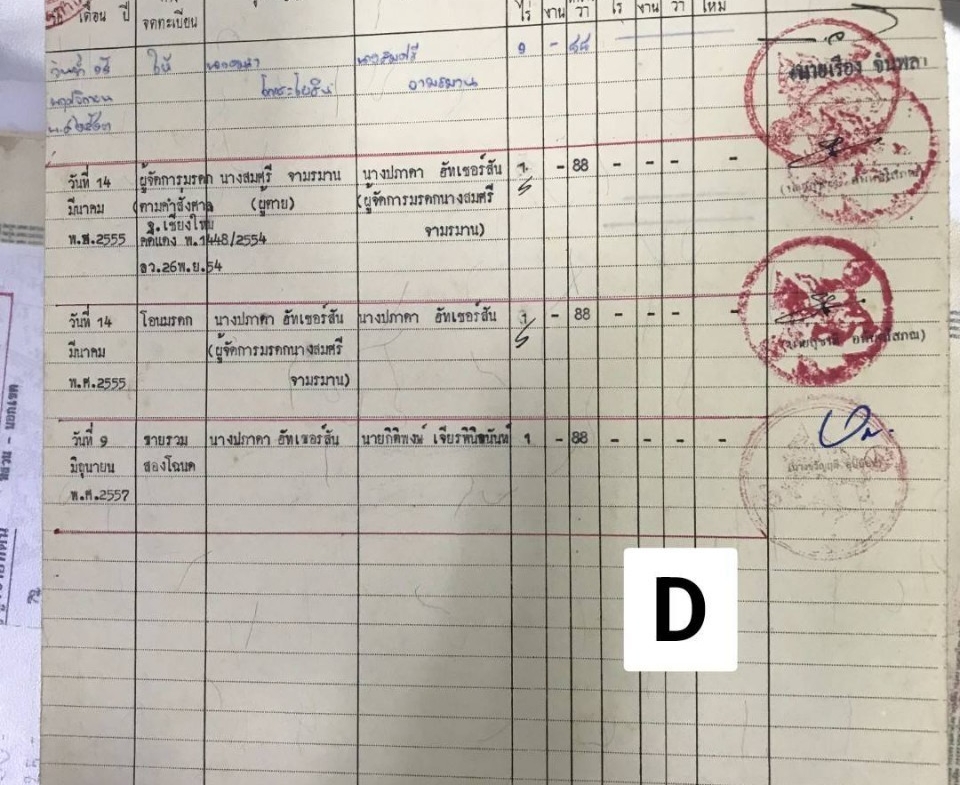 เดือน ปี
จดทะเบียน
ไร่ งาน วา ไร่ งาน วา ใหม่
ให้ นางสมศรี ๑ - ๘๘
จามรมาน
นายเรือง
วันที่ 14 ผู้จัดการมรดก นางสมศรี จามรมาน นางปภาดา ฮัทเชอร์สัน 1 - 88 - - - -
มีนาคม (ตามคำสั่งศาล (ผู้ตาย) (ผู้จัดการมรดกนางสมศรี
จ.เชียงใหม่
พ.ศ.2555 คดีแดง พ.1448/2554 จามรมาน)
ลว.26พ.ย.54
วันที่ 14 โอนมรดก นางปภาดา ฮัทเชอร์สัน นางปภาดา ฮัทเชอร์สัน 1 - 88 - - - -
มีนาคม (ผู้จัดการมรดกนางสมศรี
พ.ศ.2555 จามรมาน)
วันที่ 9 ขายรวม นางปภาดา ฮัทเชอร์สัน นายกิติพงษ์ 1 - 88 - - - -
มิถุนายน สองโฉนด
พ.ศ.2557
D